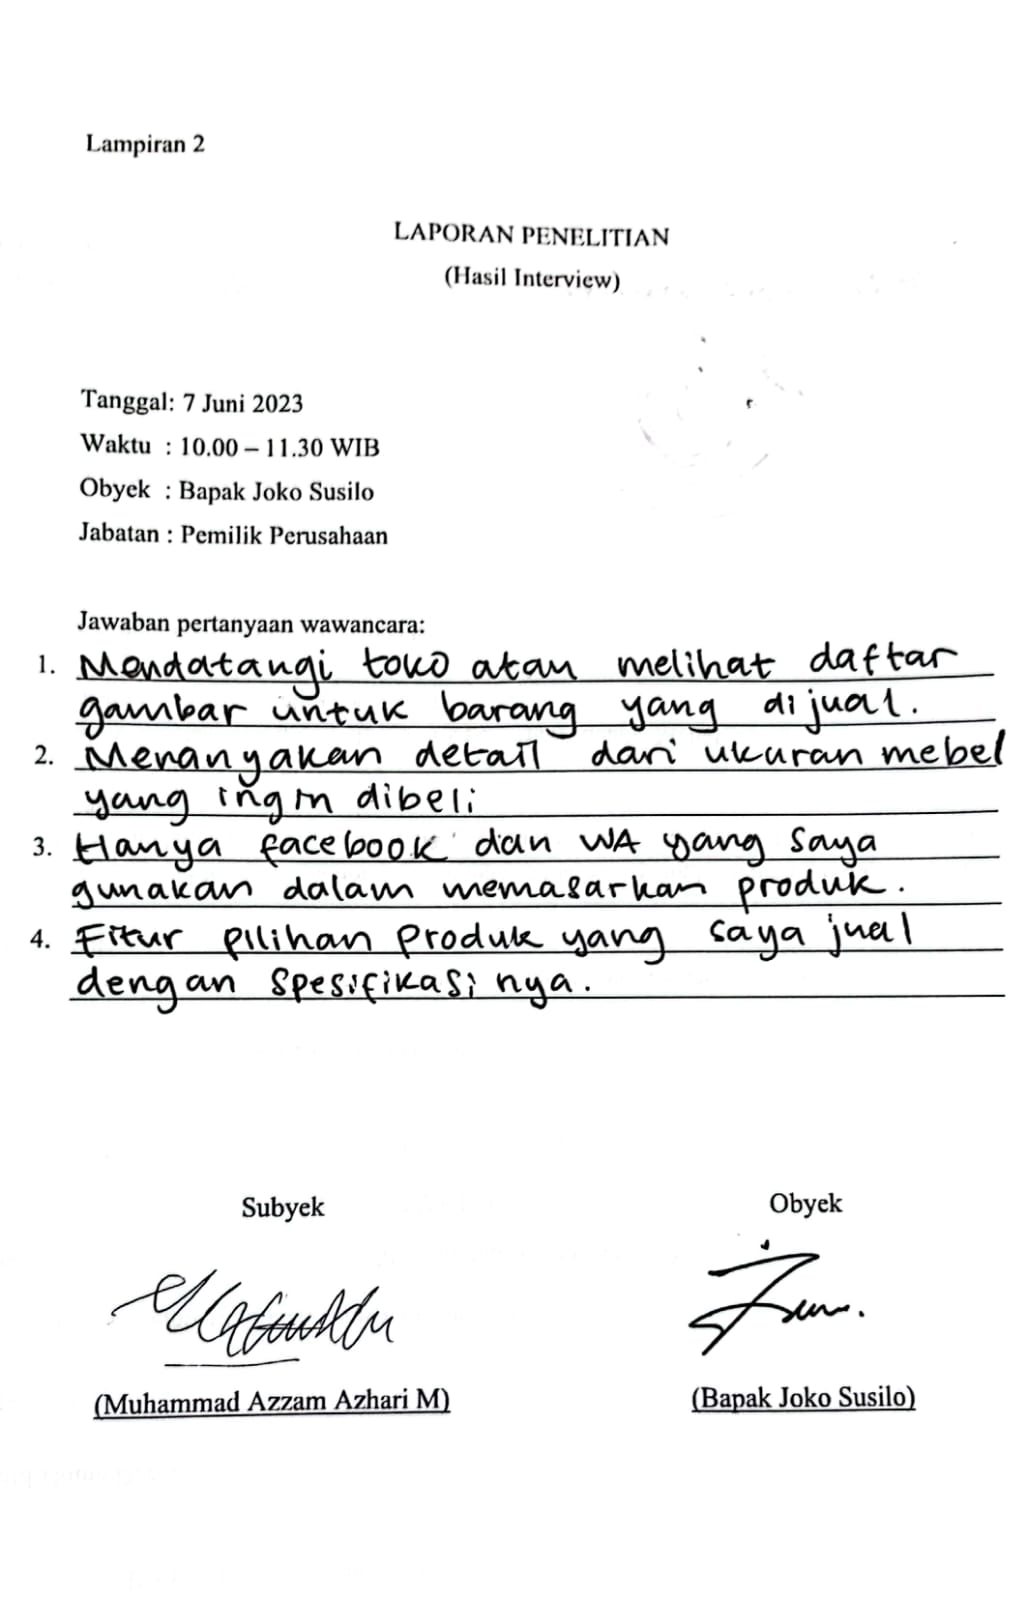 Lampiran 2
LAPORAN PENELITIAN
(Hasil Interview)
Tanggal: 7 Juni 2023
Waktu : 10.00 – 11.30 WIB
Obyek : Bapak Joko Susilo
Jabatan : Pemilik Perusahaan
Jawaban pertanyaan wawancara:
1. Mendatangi toko atau melihat daftar
gambar untuk barang yang dijual.
2. Menanyakan detail dari ukuran mebel
yang ingin dibeli
3. Hanya facebook dan WA yang saya
gunakan dalam memasarkan produk.
4. Fitur pilihan produk yang saya jual
dengan spesifikasinya.
Subyek Obyek
(Muhammad Azzam Azhari M) (Bapak Joko Susilo)